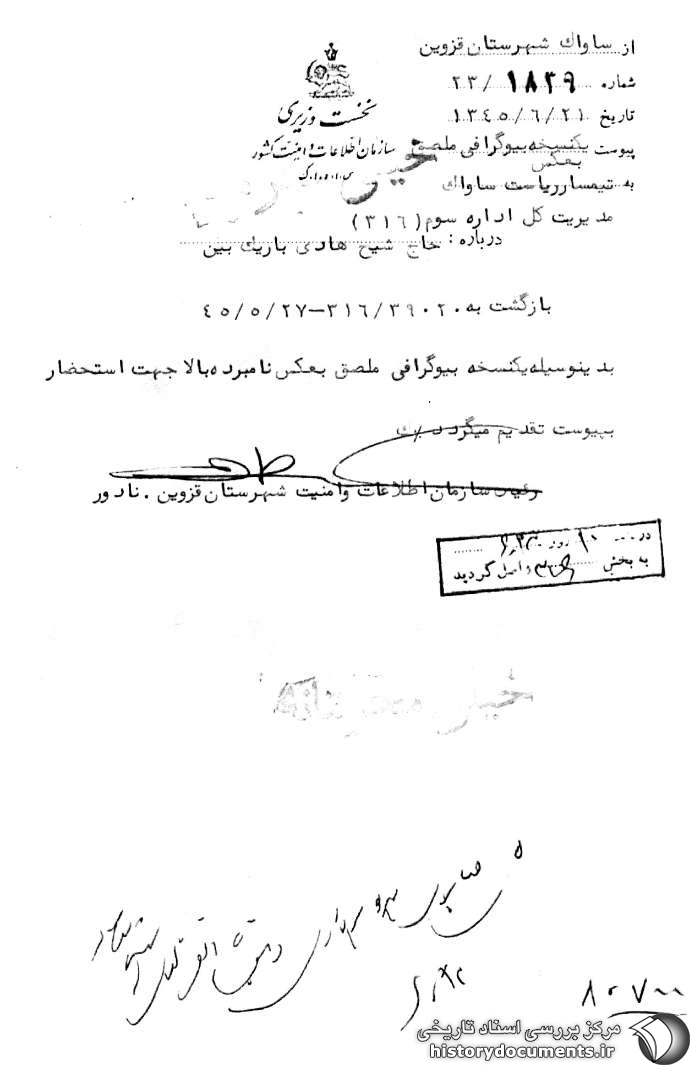 از ساواك شهرستان قزوین
شماره ۲۳/۱۸۲۹
تاریخ ۱۳۴۵/۶/۲۱
پیوست یکنسخه بیوگرافی ملصق
بعکس
نخست وزیری
سازمان اطلاعات و امنیت کشور
س.ا.و.ا.ک
به تیمسار ریاست ساواك
مدیریت کل اداره سوم (۳۱۶)
درباره: حاج شیخ هادی باریك بین
بازگشت به ۳۱۶/۳۹۰۲۰-۴۵/۵/۲۷
بدینوسیله یکنسخه بیوگرافی ملصق بعکس نامبرده بالا جهت استحضار
بپیوست تقدیم میگردد
رئیس سازمان اطلاعات وامنیت شهرستان قزوین . نادور
در ... ۱۰ روز
به بخش واصل گردید
خیلی محرمانه
۸۰۷۰۰
مرکز بررسی اسناد تاریخی
historydocuments.ir